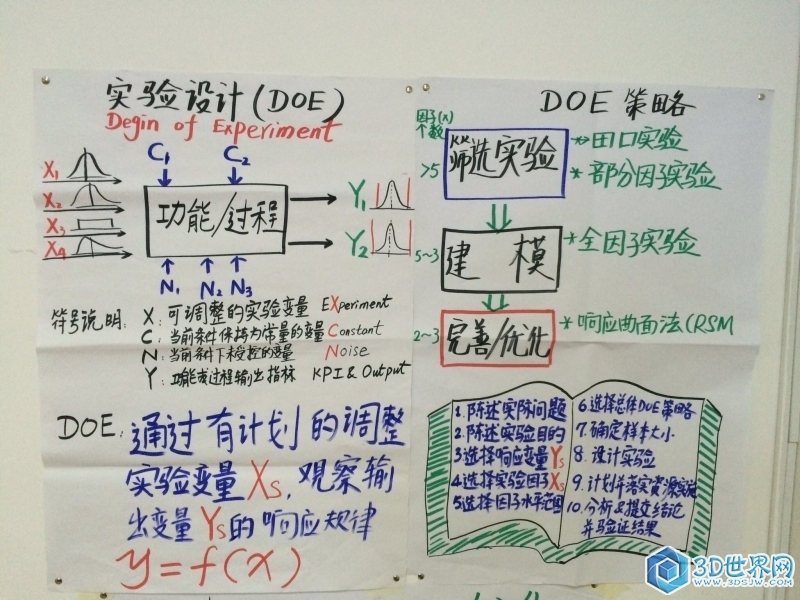 实验设计(DOE)
Degin of Experiment
C1 C2
X1
X2
X3
X4
功能/过程
Y1
Y2
N1 N2 N3
符号说明:
X:可调整的实验变量 EXperiment
C:当前条件保持为常量的变量 Constant
N:当前条件下未控的变量 Noise
Y:功能或过程输出指标 KPI & Output
DOE:通过有计划的调整
实验变量Xs,观察输
出变量Ys的响应规律
y=f(x)
DOE 策略
因子(X)
个数
>5
筛选实验
*田口实验
*部分因子实验
5~3
建模
*全因子实验
2~3
完善/优化
*响应曲面法(RSM
1.陈述实际问题
2.陈述实验目的
3.选择响应变量Ys
4.选择实验因子Xs
5.选择因子水平范围
6.选择总体DOE策略
7.确定样本大小
8.设计实验
9.计划并落实资源实施
10.分析&提交结论
并马验证结果
3D世界网
WWW.3DSJW.COM